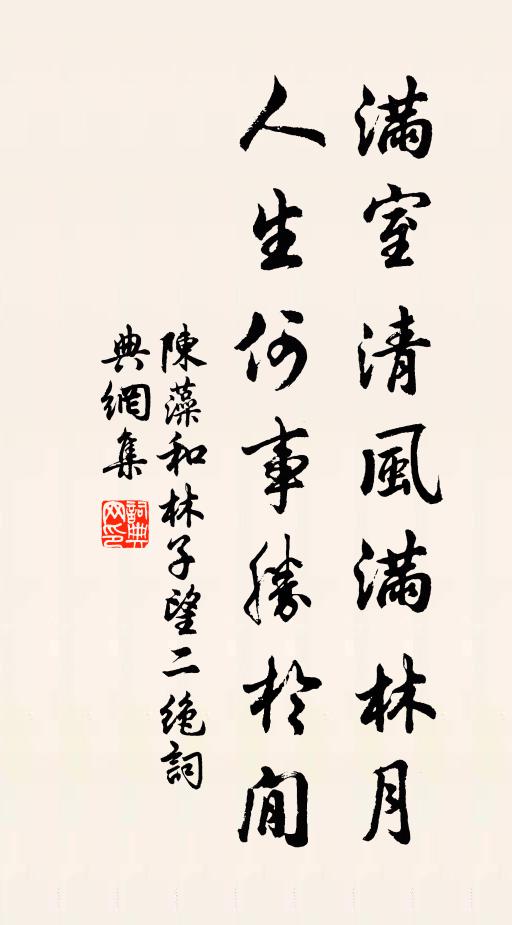 滿室清風滿林月
人生何事勝於閒
陳藻和林子望二絶詞
典網集
詞典网印